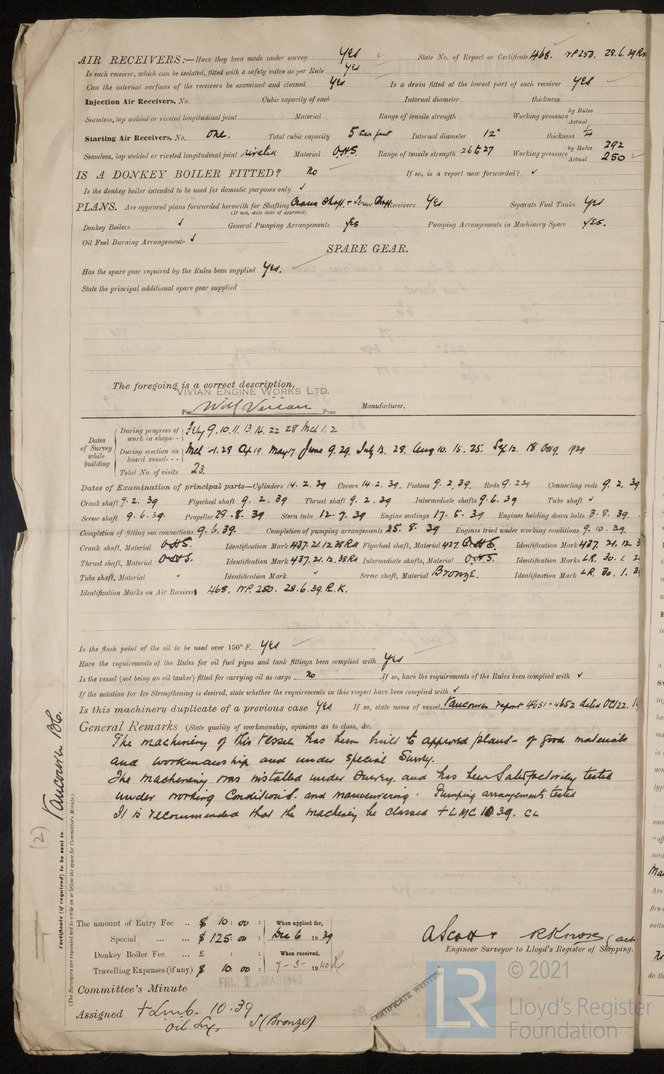 AIR RECEIVERS:— Have they been made under survey Yes State No. of Report or Certificate 468. WP 250. 28.6.39 RK
Is each receiver, which can be isolated, fitted with a safety valve as per Rule Yes
Can the internal surfaces of the receivers be examined and cleaned Yes Is a drain fitted at the lowest part of each receiver Yes
Injection Air Receivers, No. Cubic capacity of each Internal diameter thickness
Seamless, lap welded or riveted longitudinal joint Material Range of tensile strength Working pressure by Rules Actual
Starting Air Receivers, No. One. Total cubic capacity 5 Internal diameter 12" thickness 1/4
Seamless, lap welded or riveted longitudinal joint riveted Material O.H.S. Range of tensile strength 26 to 27 Working pressure by Rules 292 Actual 250
IS A DONKEY BOILER FITTED? No If so, is a report now forwarded?
Is the donkey boiler intended to be used for domestic purposes only
PLANS. Are approved plans forwarded herewith for Shafting Crank Shaft + Screw Shaft Receivers Yes Separate Fuel Tanks Yes
(If not, state date of approval)
Donkey Boilers General Pumping Arrangements Yes Pumping Arrangements in Machinery Space Yes.
Oil Fuel Burning Arrangements
SPARE GEAR.
Has the spare gear required by the Rules been supplied Yes.
State the principal additional spare gear supplied
The foregoing is a correct description,
VIVIAN ENGINE WORKS LTD.
Per Will Vivian Pres Manufacturer.
Dates of Survey while building
During progress of work in shops-- Feby 9. 10. 11. 13. 14. 22 28 Mch 1. 2
During erection on board vessel--- Mch 1. 28 Apl 19 May 17 June 9. 29. July 12. 28. Aug 10. 15. 25. Sep 12. 18. Oct 9. 1939
Total No. of visits 23.
Dates of Examination of principal parts—Cylinders 14. 2. 39 Covers 14. 2. 39. Pistons 9. 2. 39. Rods 9. 2 39 Connecting rods 9. 2. 39
Crank shaft 9. 2. 39 Flywheel shaft 9. 2. 39 Thrust shaft 9. 2. 39 Intermediate shafts 9. 6. 39 Tube shaft
Screw shaft 9. 6. 39. Propeller 29. 8. 39 Stern tube 12. 7. 39 Engine seatings 17. 5. 39 Engines holding down bolts 3. 8. 39.
Completion of fitting sea connections 9. 6. 39. Completion of pumping arrangements 25. 8. 39 Engines tried under working conditions 9. 10. 39
Crank shaft, Material O.H.S. Identification Mark 437. 21. 12. 38 RK Flywheel shaft, Material 437. O.H.S. Identification Mark 437. 21. 12. 3
Thrust shaft, Material O.H.S. Identification Mark 437. 21. 12. 38 RK Intermediate shafts, Material O.H.S. Identification Marks LR. 30. 1. 2
Tube shaft, Material Identification Mark Screw shaft, Material Bronze. Identification Mark LR. 30. 1. 3
Identification Marks on Air Receivers 468. WP. 250. 28. 6. 39 R.K.
Is the flash point of the oil to be used over 150° F. Yes
Have the requirements of the Rules for oil fuel pipes and tank fittings been complied with Yes
Is the vessel (not being an oil tanker) fitted for carrying oil as cargo No If so, have the requirements of the Rules been complied with
If the notation for Ice Strengthening is desired, state whether the requirements in this respect have been complied with
Is this machinery duplicate of a previous case Yes If so, state name of vessel Vancouver report 4651 - 4652 dated Oct 22.
General Remarks (State quality of workmanship, opinions as to class, &c.
The machinery of this vessel has been built to approved plans - of good materials
and workmanship and under special Survey.
The machinery was installed under Survey, and has been Satisfactorily tested
under working Conditions. and manoeuvering. Pumping arrangements tested
It is recommended that the machinery be classed + LMC 10 39. CL
(2) Vancouver B.C.
Certificate (if required) to be sent to
(The Surveyors are requested not to write on or below the space for Committee's Minute.)
The amount of Entry Fee .. $ 10 : 00 : When applied for,
Special ... ... $ 125. 00 : Dec 6 1939
Donkey Boiler Fee ... £ : : When received,
Travelling Expenses (if any) $ 10 00 : 7 - 3 - 1940
A Scott + R Knox
Engineer Surveyor to Lloyd's Register of Shipping.
Committee's Minute
FRI. 1 MAR 1940
Assigned + Lmb. 10. 39
Oil Eng. S (Bronze)
CERTIFICATE WRITTEN
LR © 2021
Lloyd's Register
Foundation